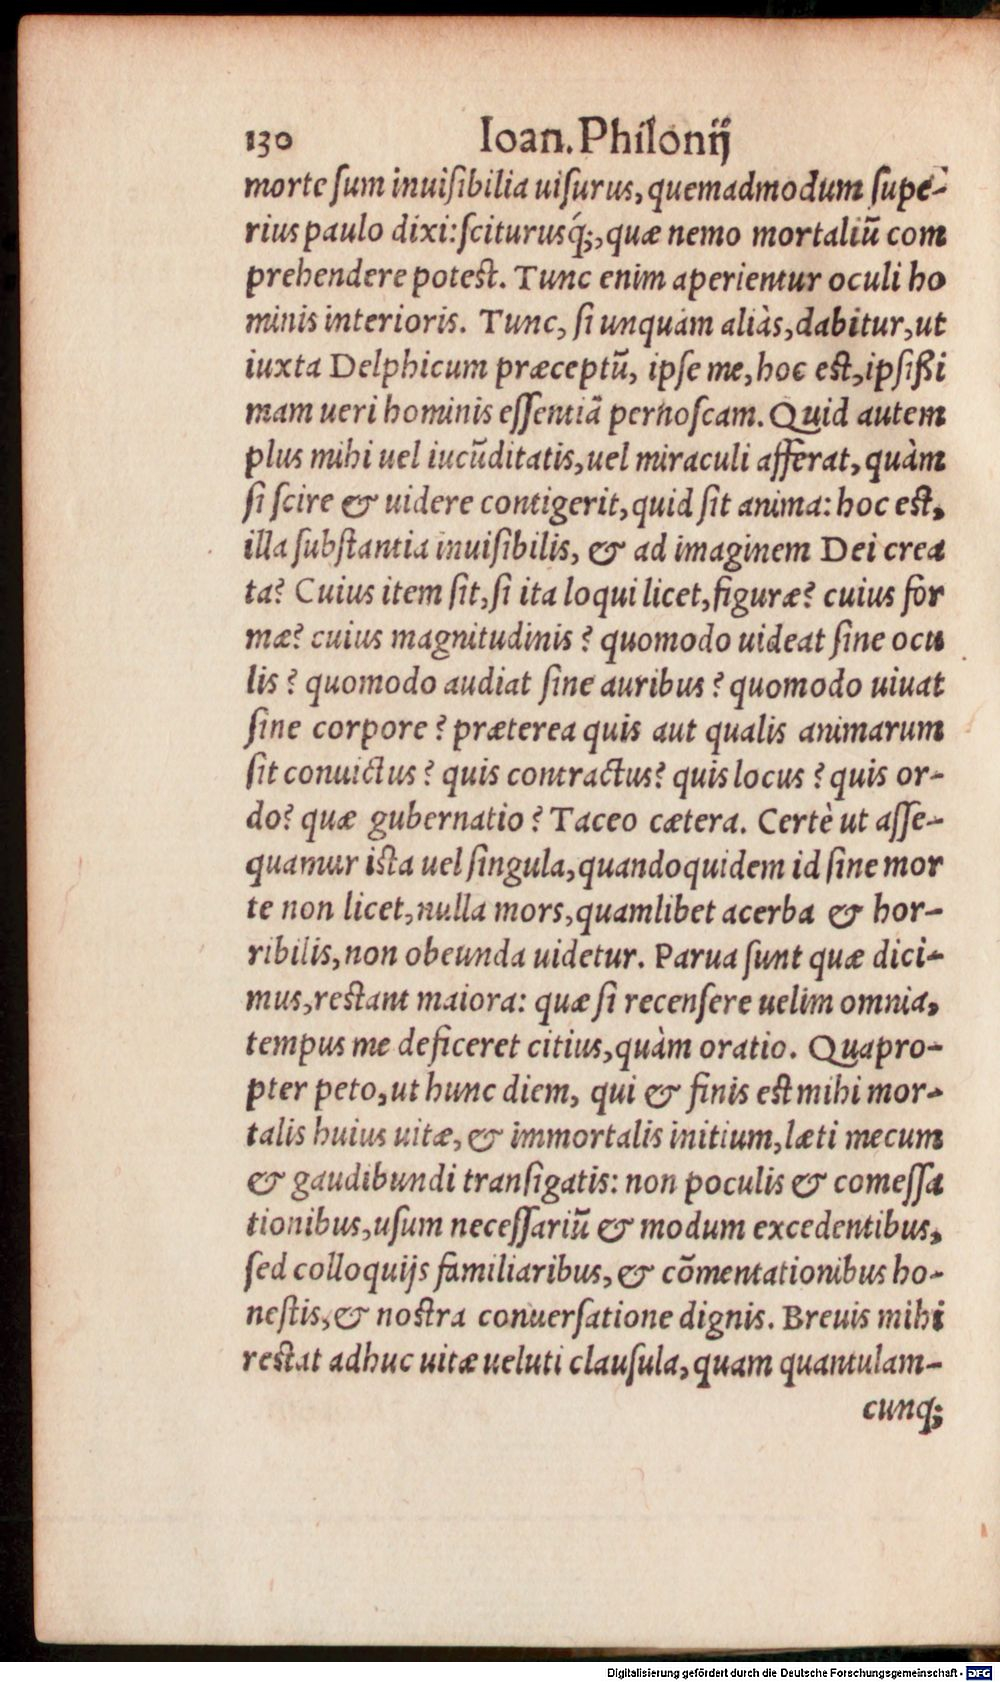 130 Ioan. Philonij
morte ſum inuiſibilia uiſurus, quemadmodum ſupe-
rius paulo dixi: ſciturusq́;, quæ nemo mortaliũ com
prehendere poteſt. Tunc enim aperientur oculi ho
minis interioris. Tunc, ſi unquam aliàs, dabitur, ut
iuxta Delphicum præceptũ, ipſe me, hoc eſt, ipſißi
mam ueri hominis eſſentiã pernoſcam. Quid autem
plus mihi uel iucũditatis, uel miraculi afferat, quàm
ſi ſcire & uidere contigerit, quid ſit anima: hoc eſt,
illa ſubſtantia inuiſibilis, & ad imaginem Dei crea
ta? Cuius item ſit, ſi ita loqui licet, figuræ? cuius for
mæ? cuius magnitudinis? quomodo uideat ſine ocu
lis? quomodo audiat ſine auribus? quomodo uiuat
ſine corpore? præterea quis aut qualis animarum
ſit conuictus? quis contractus? quis locus? quis or-
do? quæ gubernatio? Taceo cætera. Certè ut aſſe-
quamur iſta uel ſingula, quandoquidem id ſine mor
te non licet, nulla mors, quamlibet acerba & hor-
ribilis, non obeunda uidetur. Parua ſunt quæ dici-
mus, reſtant maiora: quæ ſi recenſere uelim omnia,
tempus me deficeret citius, quàm oratio. Quapro-
pter peto, ut hunc diem, qui & finis eſt mihi mor-
talis huius uitæ, & immortalis initium, læti mecum
& gaudibundi tranſigatis: non poculis & comeſſa
tionibus, uſum neceſſariũ & modum excedentibus,
ſed colloquijs familiaribus, & cõmentationibus ho-
neſtis, & noſtra conuerſatione dignis. Breuis mihi
reſtat adhuc uitæ ueluti clauſula, quam quantulam-
cunq;
Digitalisierung gefördert durch die Deutsche Forschungsgemeinschaft - DFG